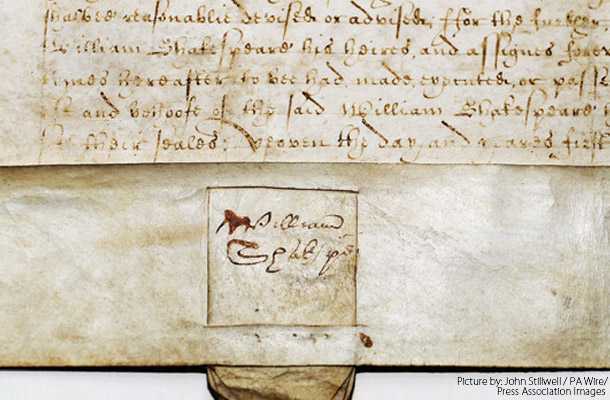 shalbee reasonablie devised or advised, ffor the further
William Shakespeare his heires, and assignes forev
tymes hereafter to bee had, made, executed, or pass
the said William Shakespeare
their seales; Yeoven the day and yeares first
William
Shakspe
Picture by: John Stillwell / PA Wire/
Press Association Images